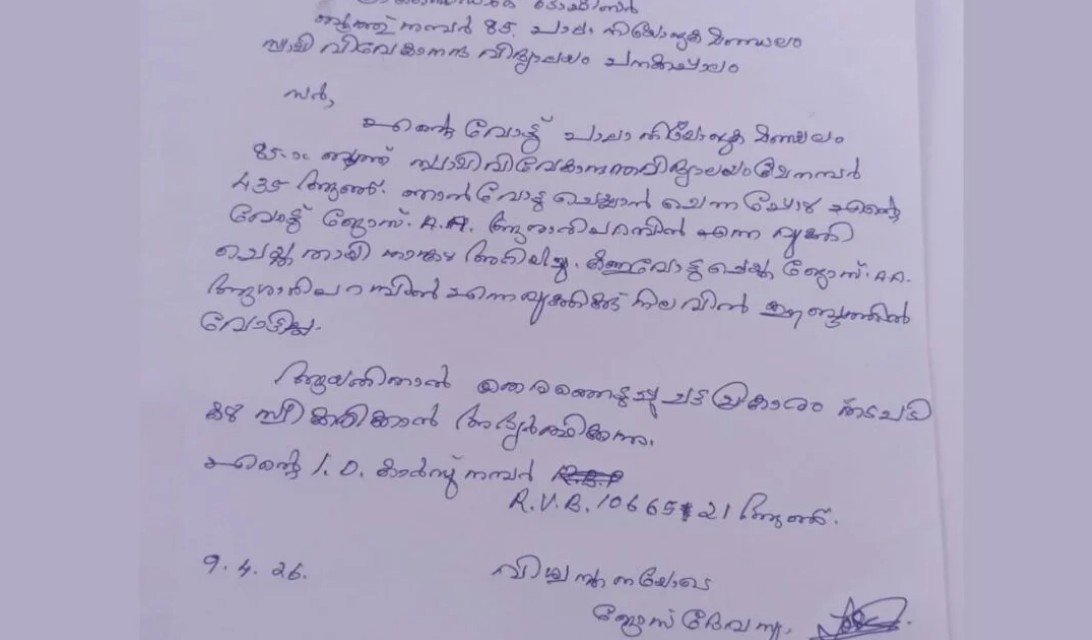 ബൂത്ത് നമ്പർ 85. പാലാ നിയോജക മണ്ഡലം
സ്വാമി വിവേകാനന്ദ വിദ്യാലയം പനക്കപ്പാലം
സർ,
എന്റെ വോട്ട് പാലാ നിയോജക മണ്ഡലം
85-ാം ബൂത്ത് സ്വാമിവിവേകാനന്ദവിദ്യാലയം ക്രമനമ്പർ
435 ആണ്. ഞാൻ വോട്ട് ചെയ്യാൻ ചെന്നപ്പോൾ എന്റെ
വോട്ട് ജോസ്. A.A. എന്ന വ്യക്തി
ചെയ്തതായി അറിയിച്ചു. വോട്ടു ചെയ്ത ജോസ്. A.A.
എന്നവ്യക്തിക്ക് നിലവിൽ ഈ ബൂത്തിൽ
വോട്ടില്ല.
ആയതിനാൽ തെരഞ്ഞെടുപ്പു ചട്ടപ്രകാരം നടപടി
കൾ സ്വീകരിക്കാൻ അഭ്യർത്ഥിക്കുന്നു.
എന്റെ I.D. കാർഡ് നമ്പർ
R.V.B. 1066521 ആണ്.
9.4.26. വിശ്വസ്തതയോടെ
ജോസ് ദേവസ്യ.